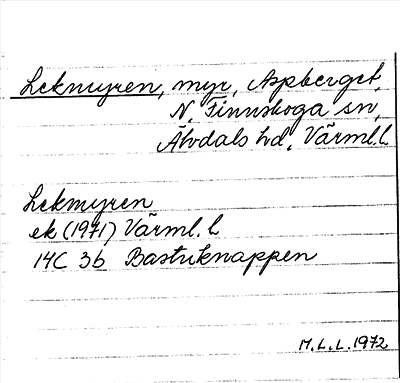 Lekmyren, myr, Aspberget,
N. Finnskoga sn,
Älvdals hd, Värml. l.
Lekmyren
ek (1971) Värml. l.
14C 3b Bastuknappen
M.L.L. 1972